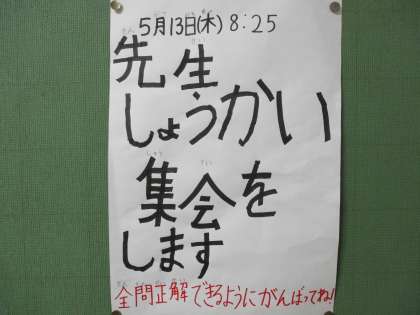 5月13日(木) 8:25
先生
しょうかい
集会を
します
全問正解できるようにがんばってね!